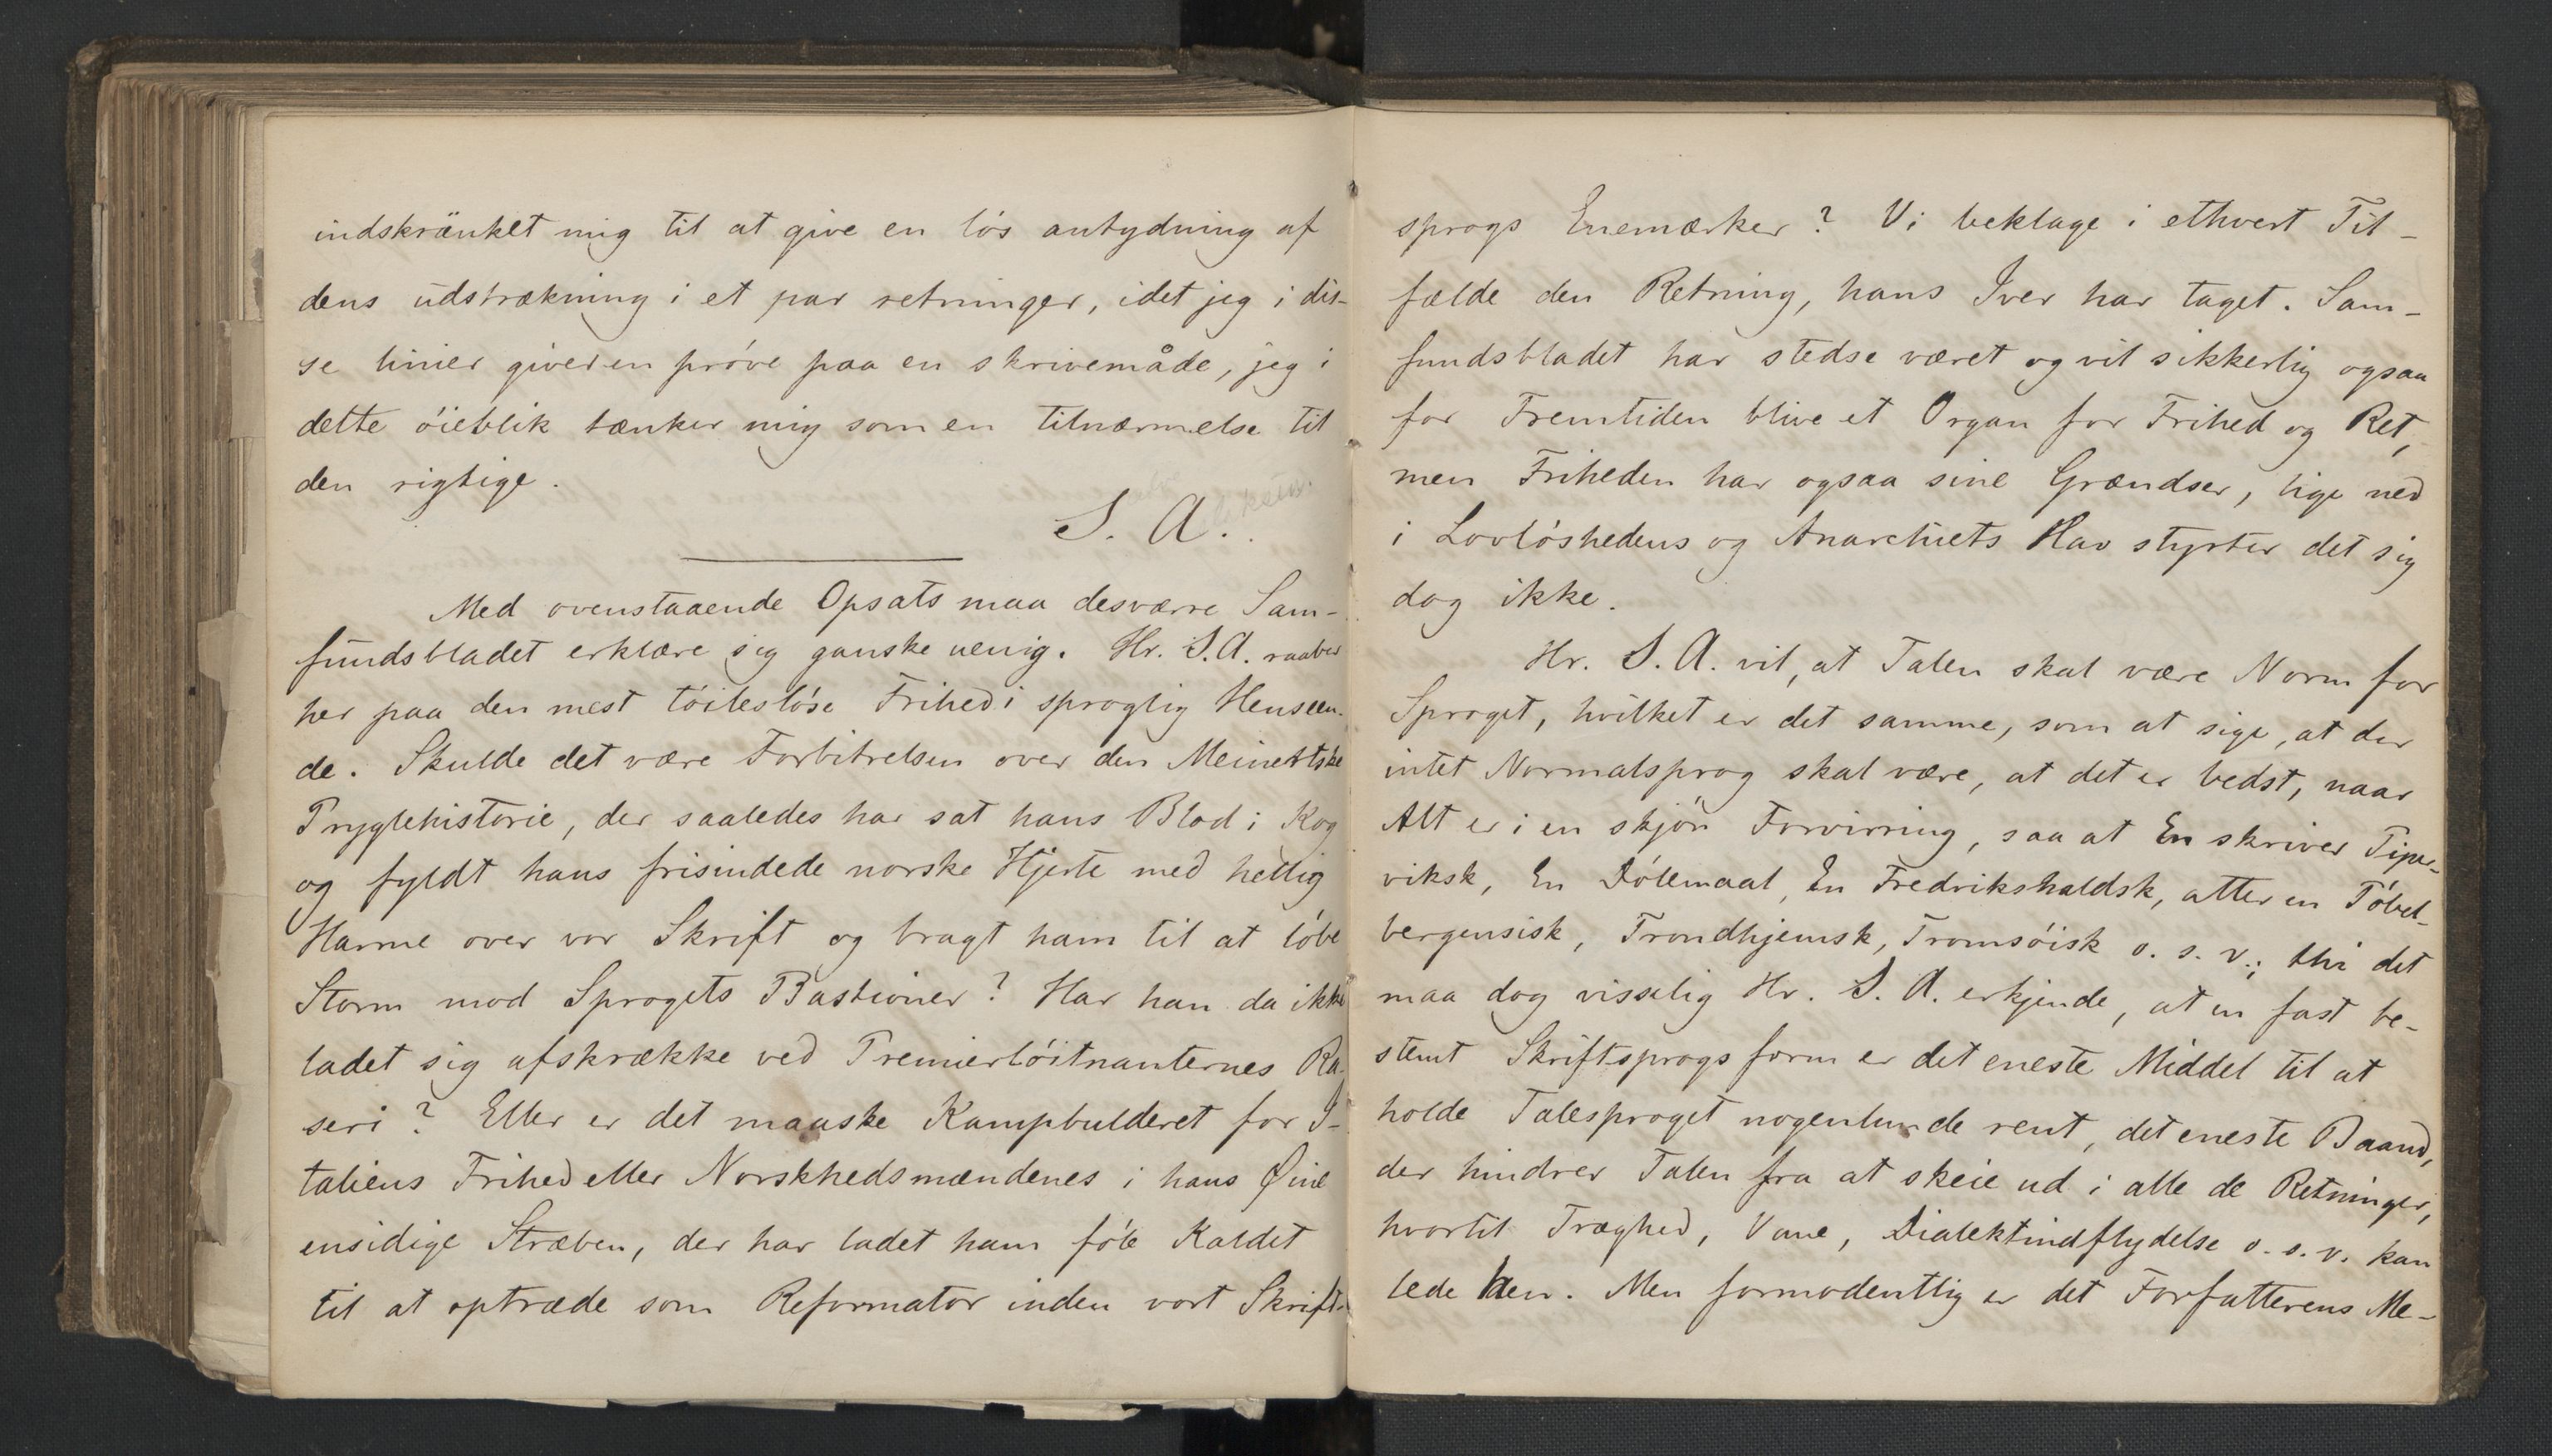 indskränket mig til at give en lös antydning af
dens udstrækning i et par retninger, idet jeg i dis-
se linier giver en pröve paa en skrivemåde, jeg i
dette öieblik tænker mig som en tilnærmelse til
den rigtige.
S. A.
Med ovenstaaende Opsats maa desværre Sam-
fundsbladet erklære sig ganske uenig. Hr. S. A. raaber
her paa den mest töilesløse Frihed i sproglig Henseen-
de. Skulde det være Forbitrelsen over den Meinertske
Pryglehistorie, der saaledes har sat hans Blod i Kog
og fyldt hans frisindede norske Hjerte med hellig
Harme over vor Skrift og bragt ham til at löbe
Storm mod Sprogets Bastioner? Har han da ikke
ladet sig afskrække ved Premierlöitnanternes Ra-
seri? Eller er det maaske Kampbulderet for I-
taliens Frihed eller Norskhedsmændenes i hans Øine
ensidige Stræben, der har ladet ham föle Kaldet
til at optræde som Reformator inden vort Skrift-
sprogs Enemærker? Vi beklage i ethvert Til-
fælde den Retning, hans Iver har taget. Sam-
fundsbladet har stedse været og vil sikkerlig ogsaa
for Fremtiden blive et Organ for Frihed og Ret,
men Friheden har ogsaa sine Grændser, lige ned
i Lovlöshedens og Anarchiets Hav styrter det sig
dog ikke.
Hr. S. A. vil, at Talen skal være Norm for
Sproget, hvilket er det samme, som at sige, at der
intet Normalsprog skal være, at det er bedst, naar
Alt er i en skjön Forvirring, saa at En skriver Piper-
viksk, En Dölemaal, En Fredrikshaldsk, atter en Pöbel-
bergensisk, Trondhjemsk, Tromsöisk o. s. v.; thi det
maa dog visselig Hr. S. A. erkjende, at en fast be-
stemt Skriftsprogsform er det eneste Middel til at
holde Talesproget nogenlunde rent, det eneste Baand,
der hindrer Talen fra at skeie ud i alle de Retninger,
hvortil Træghed, Vane, Dialektindflydelse o. s. v. kan
lede hen. Men formodentlig er det Forfatterens Me-